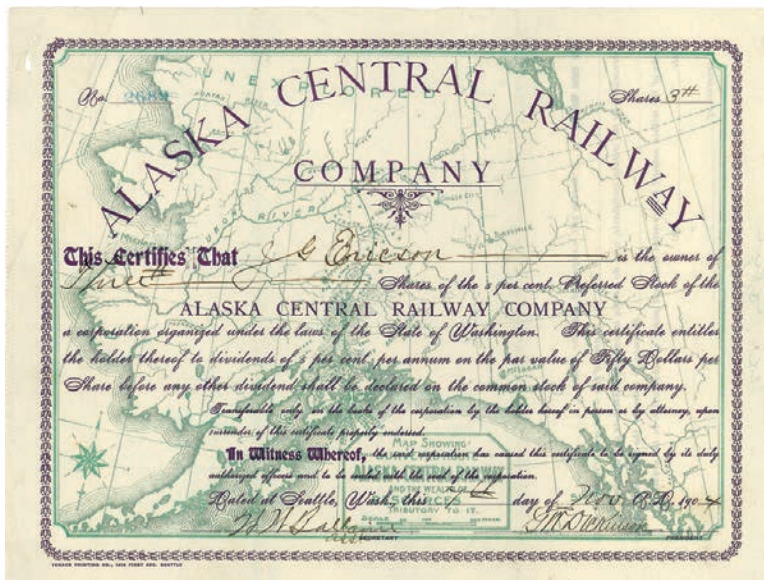 ALASKA CENTRAL RAILWAY
No. 2689 Shares 3
COMPANY
UNEXPLORED
YUKON RIVER
This Certifies That J G Ericson is the owner of
Three Shares of the 5 per cent. Preferred Stock of the
ALASKA CENTRAL RAILWAY COMPANY
a corporation organized under the laws of the State of Washington. This certificate entitles
the holder thereof to dividends of 5 per cent. per annum on the par value of Fifty Dollars per
Share before any other dividend shall be declared on the common stock of said company.
Transferable only on the books of the corporation by the holder hereof in person or by attorney, upon
surrender of this certificate properly endorsed.
In Witness Whereof, the said corporation has caused this certificate to be signed by its duly
authorized officers and to be sealed with the seal of the corporation.
MAP SHOWING
ALASKA CENTRAL RAILWAY
AND THE WEALTH OF
RESOURCES
TRIBUTORY TO IT.
SCALE
Dated at Seattle, Wash., this day of Nov A.D. 1904
SECRETARY
PRESIDENT